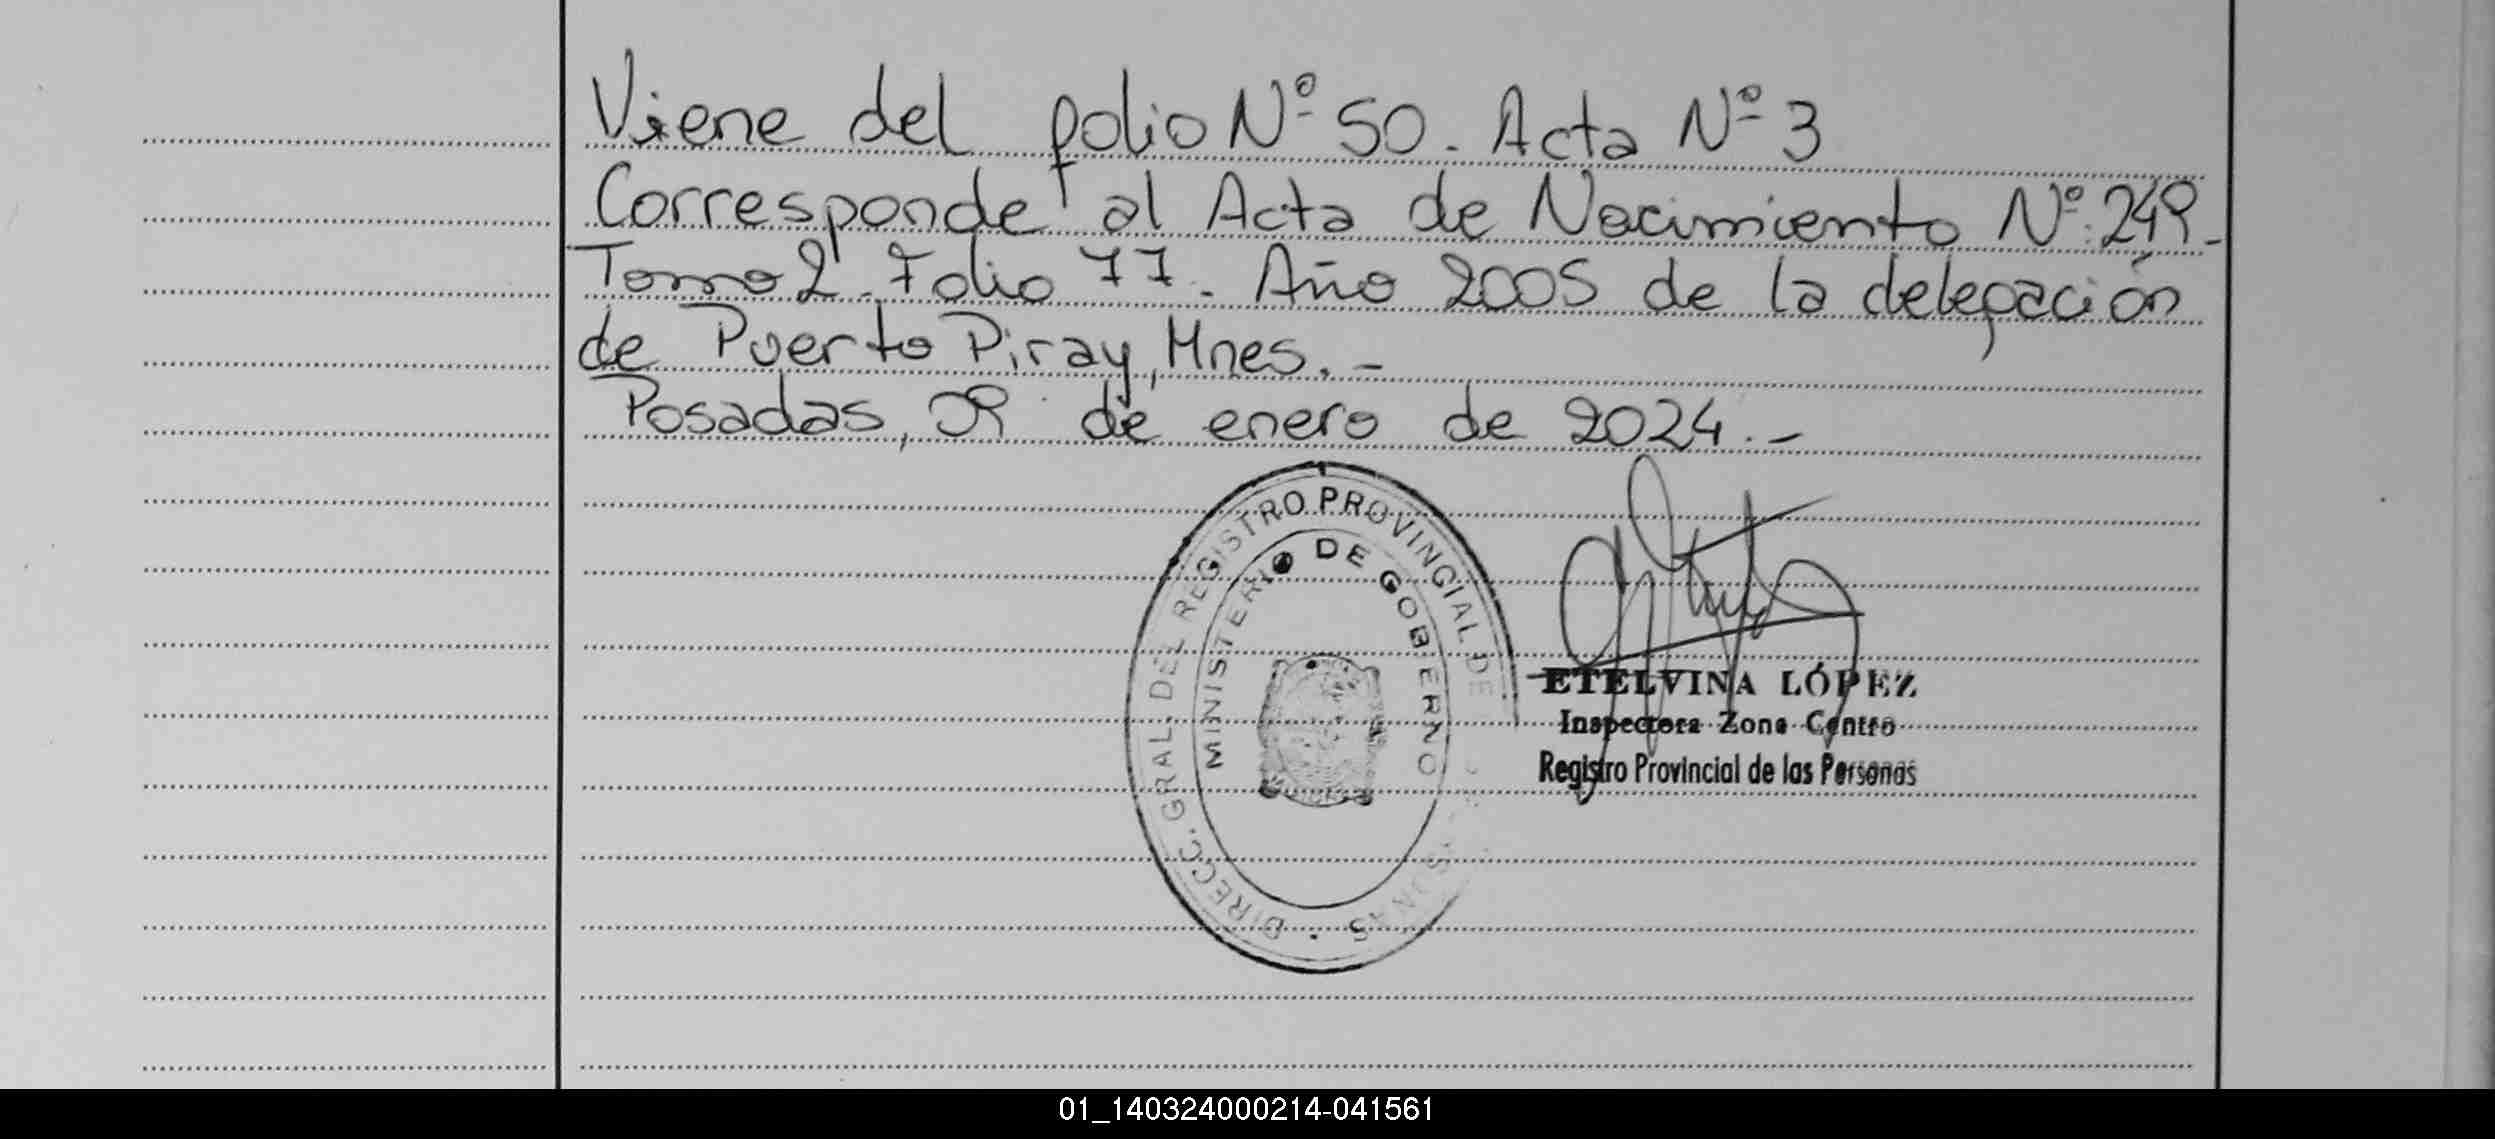 Viene del folio Nº 50. Acta Nº 3
Corresponde al Acta de Nacimiento Nº: 249.-
Tomo 2. Folio 77. Año 2005 de la delegación
de Puerto Piray, Mnes. -
Posadas, 09 de enero de 2024.-
DIRECC. GRAL. DEL REGISTRO PROVINCIAL DE
MINISTERIO DE GOBIERNO
ETELVINA LÓPEZ
Inspectora Zona Centro
Registro Provincial de las Personas
01_140324000214-041561